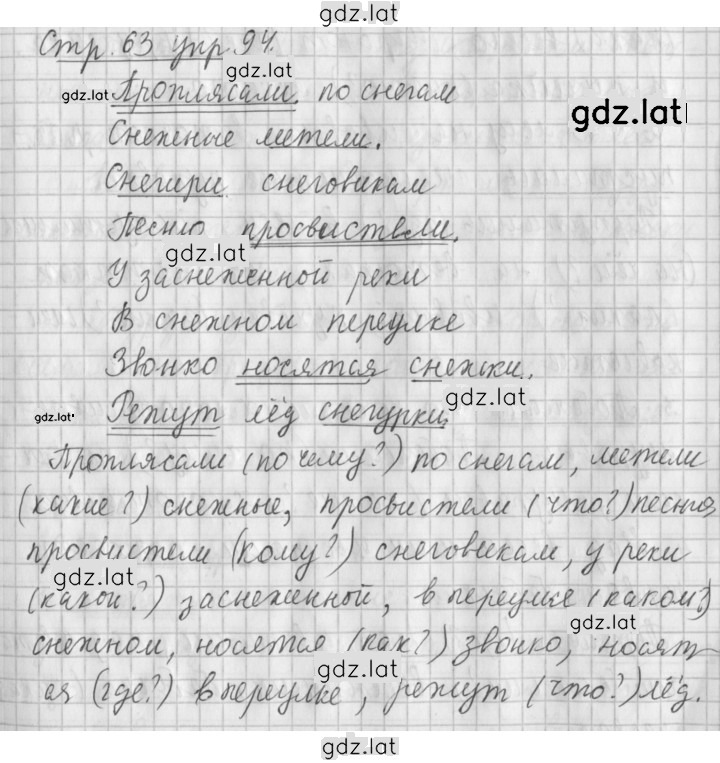 gdz.lat
Стр. 63 упр. 94.
gdz.lat
gdz.lat Проплясали по снегам
gdz.lat
Снежные метели.
Снегири снеговикам
Песню просвистели.
gdz.lat
У заснеженной реки
В снежном переулке
Звонко носятся снежки.
gdz.lat
gdz.lat Режут лёд снегурки.
Проплясали (по чему?) по снегам, метели
(какие?) снежные, просвистели (что?) песню,
просвистели (кому?) снеговикам, у реки
gdz.lat
(какой?) заснеженной, в переулке (каком?)
gdz.lat
снежном, носятся (как?) звонко, носят-
gdz.lat
ся (где?) в переулке, режут (что?) лёд.
gdz.lat